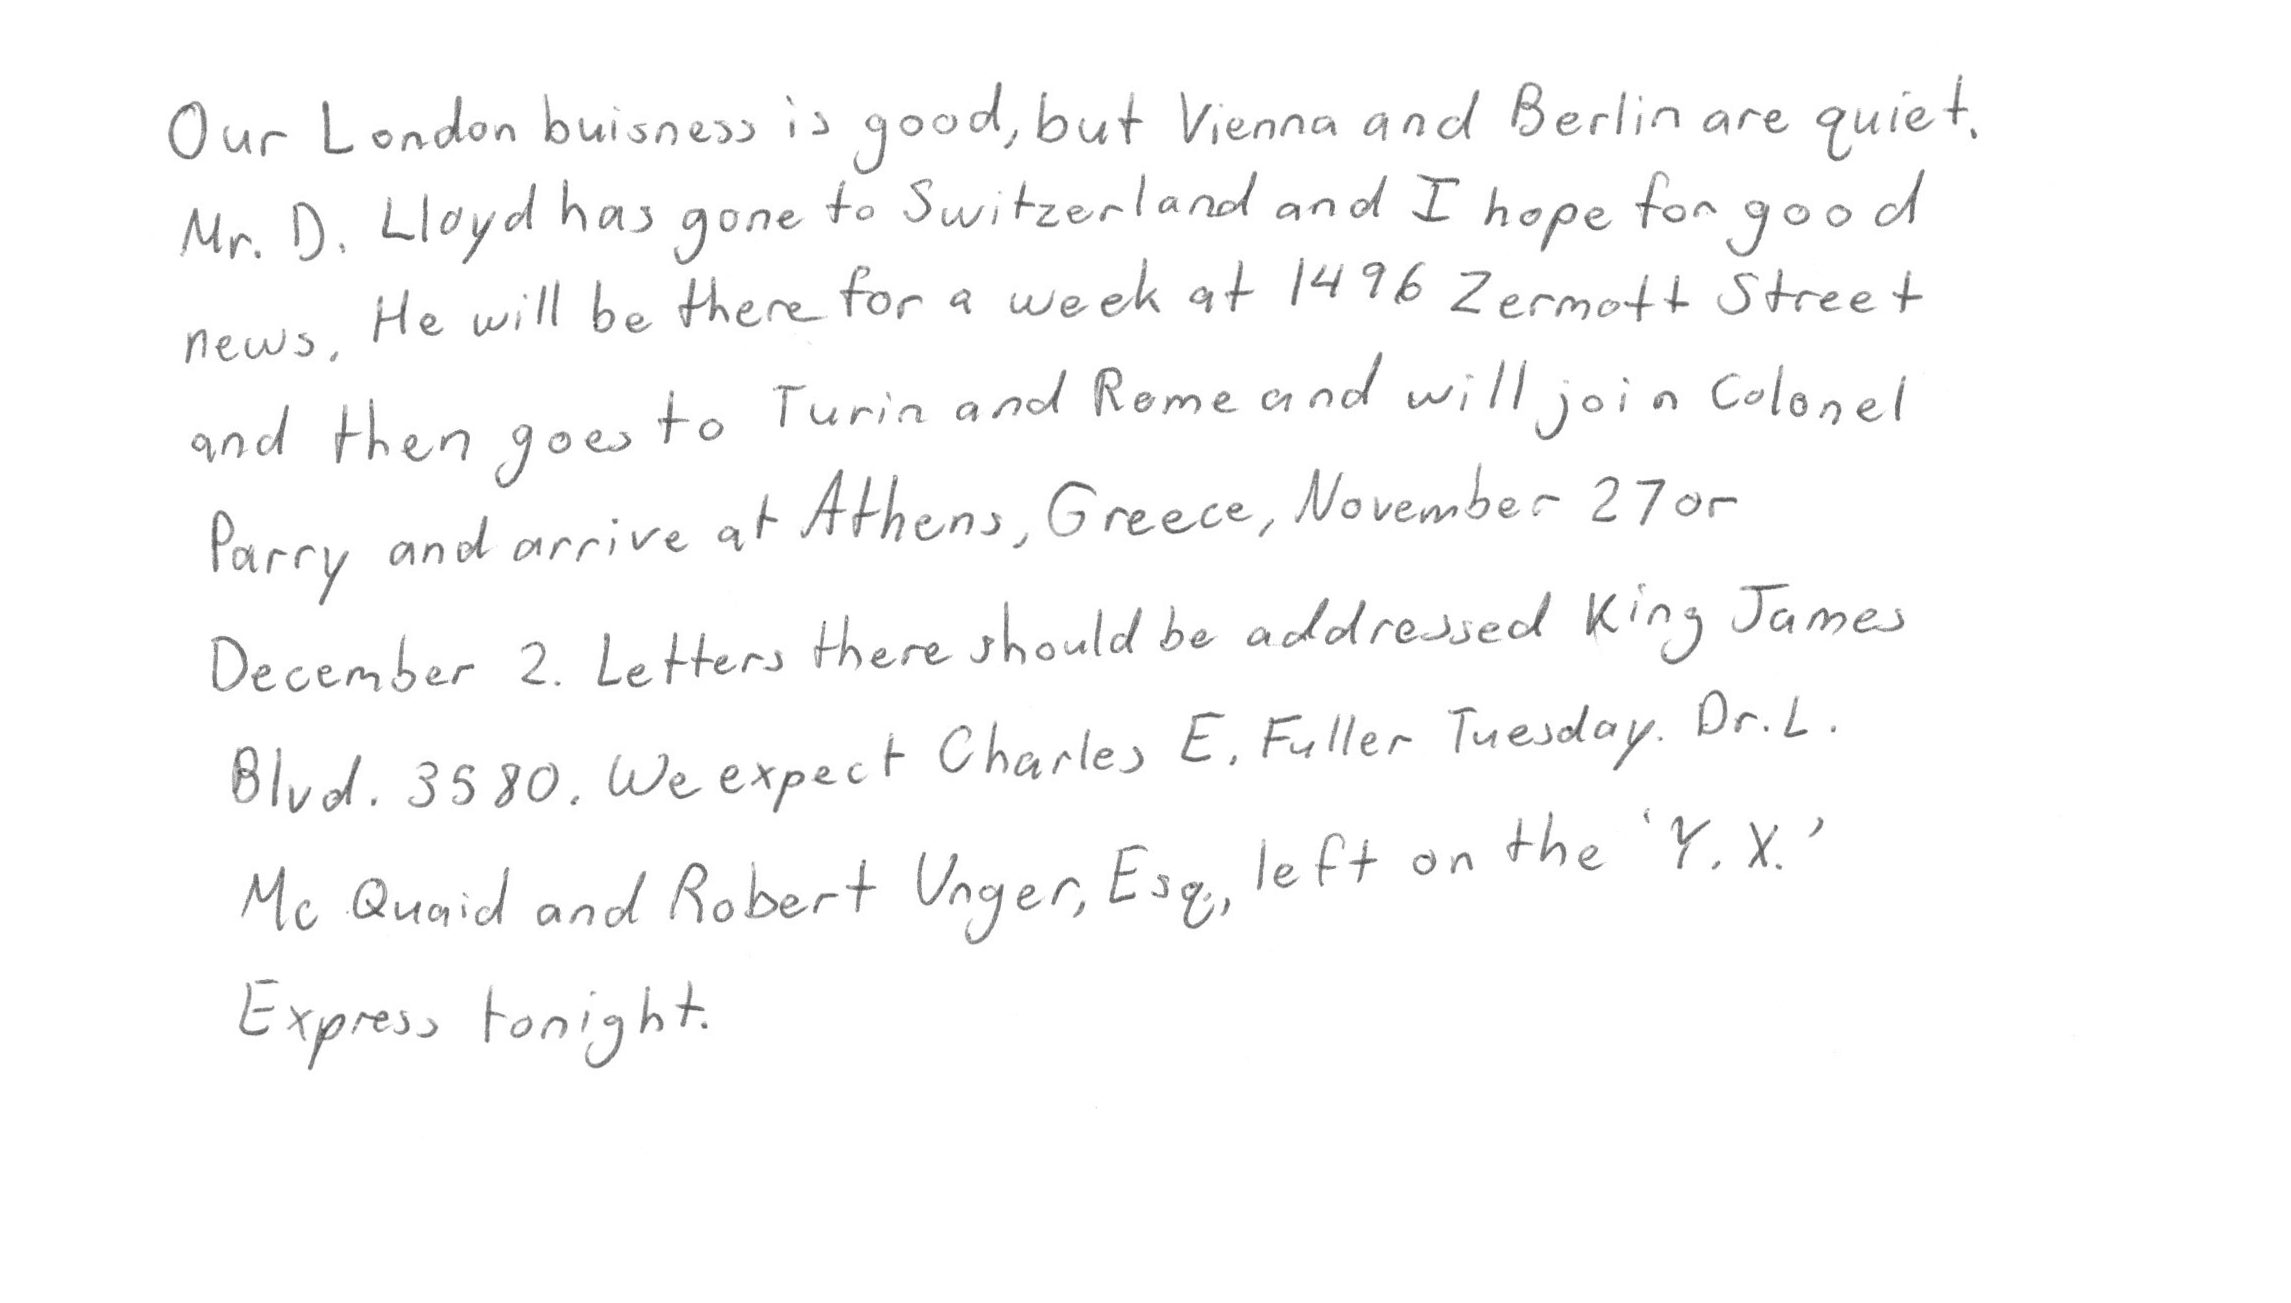 Our London buisness is good, but Vienna and Berlin are quiet.
Mr. D. Lloyd has gone to Switzerland and I hope for good
news. He will be there for a week at 1496 Zermott Street
and then goes to Turin and Rome and will join Colonel
Parry and arrive at Athens, Greece, November 27 or
December 2. Letters there should be addressed King James
Blvd. 3580. We expect Charles E. Fuller Tuesday. Dr. L.
Mc Quaid and Robert Unger, Esq., left on the 'Y. X.'
Express tonight.